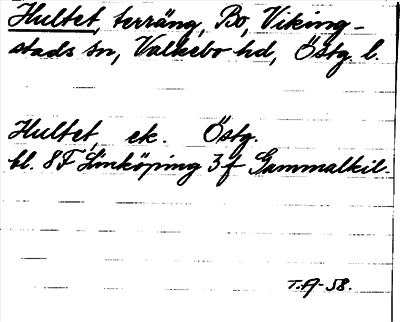 Hultet, terräng, Bo, Viking-
stads sn, Valkebo hd, Östg l.
Hultet, ek. Östg.
bl. 8F Linköping 3f Gammalkil.
T.A-58.